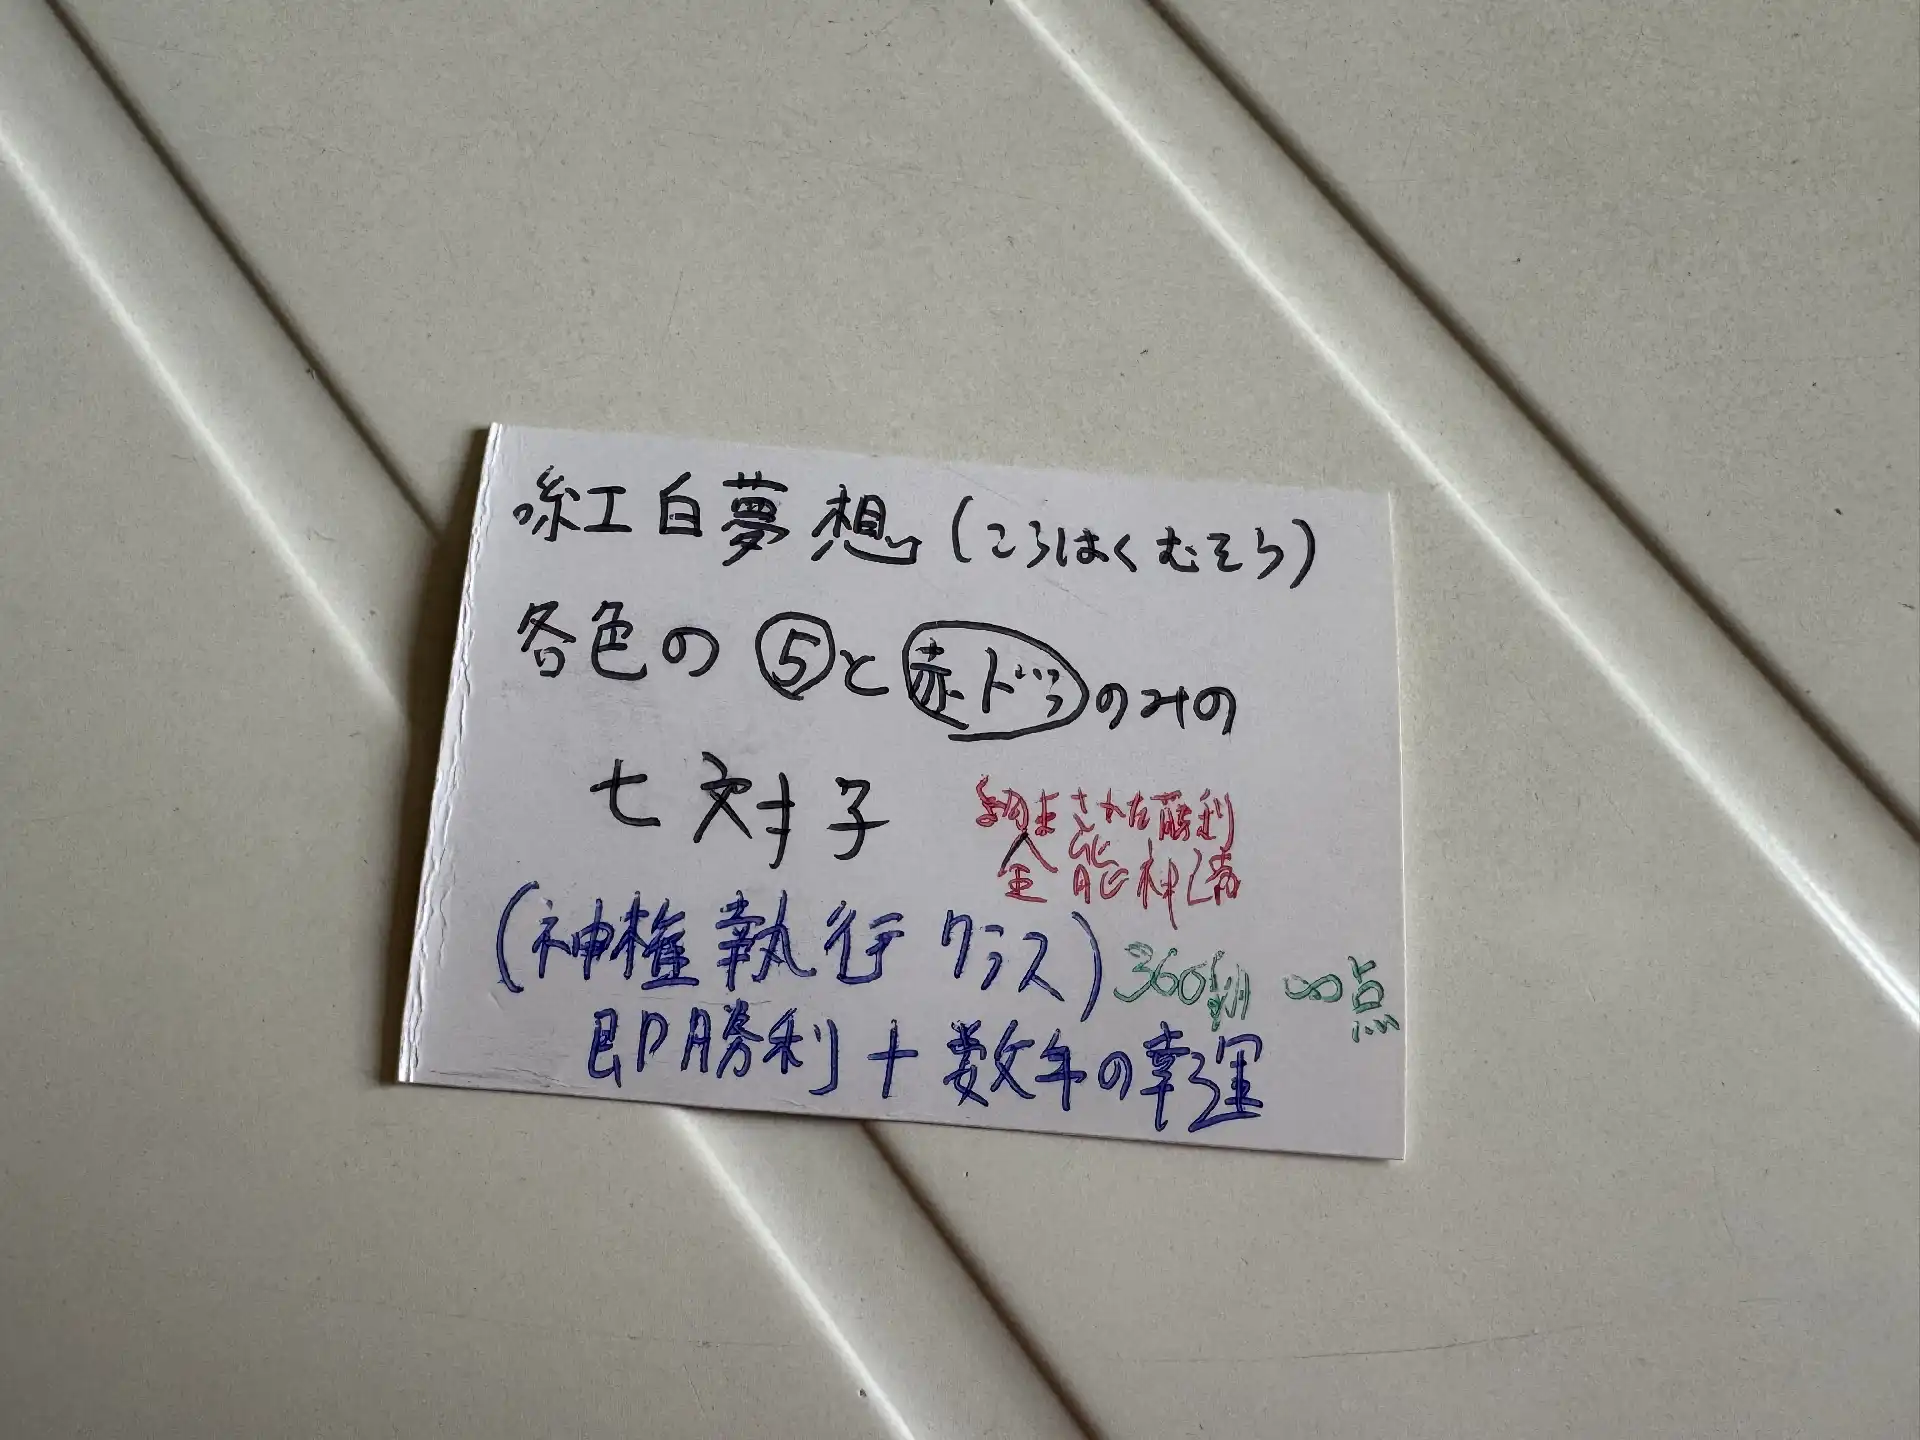 紅白夢想(こうはくむそう)
各色の⑤と赤ドラのみの
七対子
約束された勝利
全能神
(神権執行クラス)
360翻 ∞点
即勝利+数年の幸運